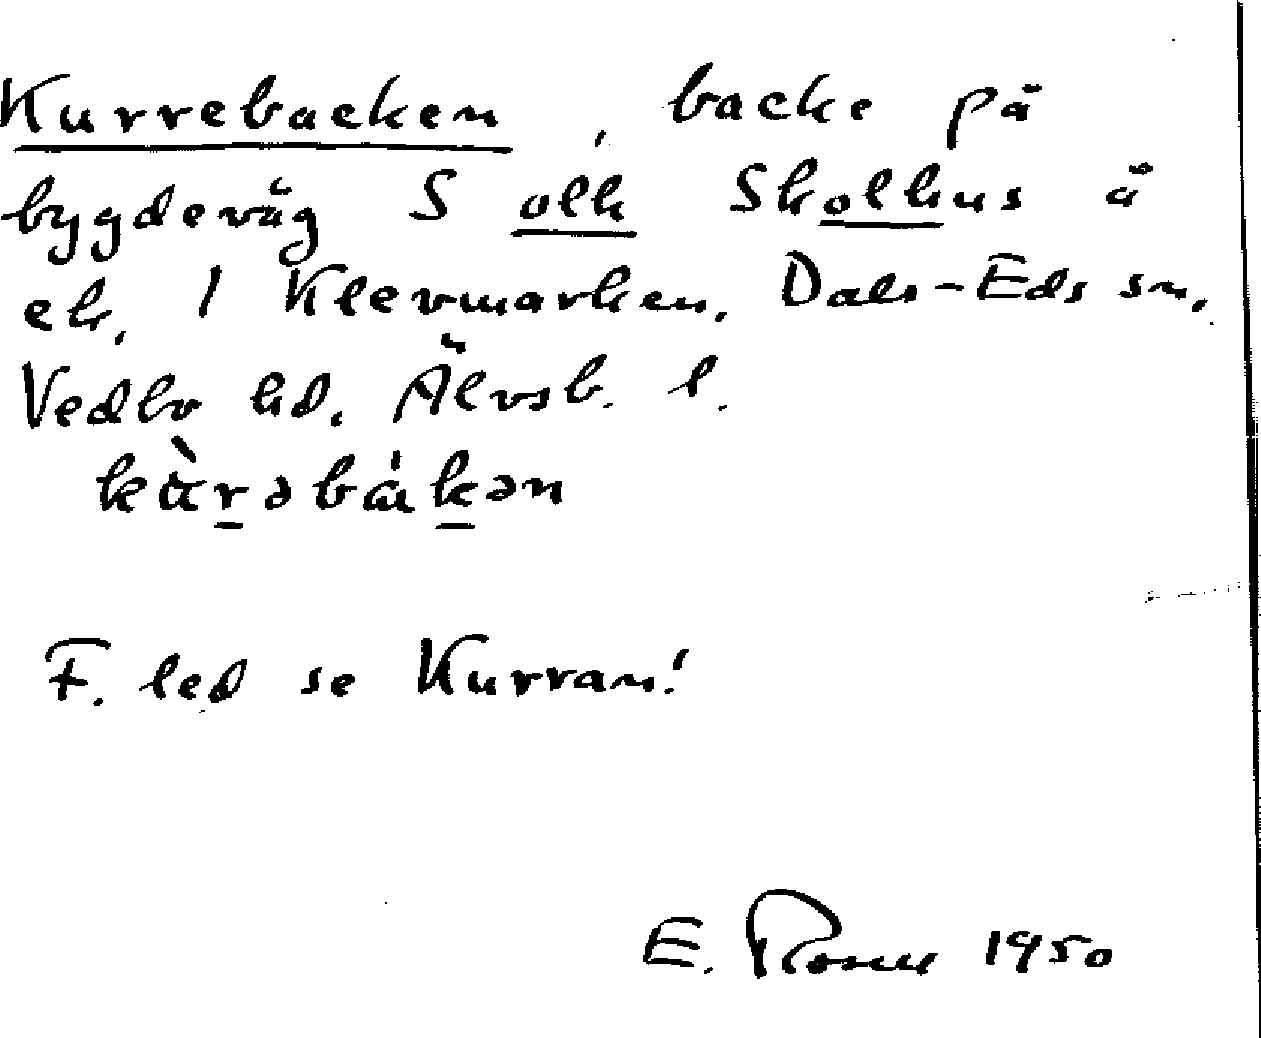 Kurrebacken, backe på
bygdeväg S olk Skolhus å
ek. 1 Klevmarken, Dals-Eds sn,
Vedbo hd. Älvsb. l.
F. led se Kurran!
E. 1950